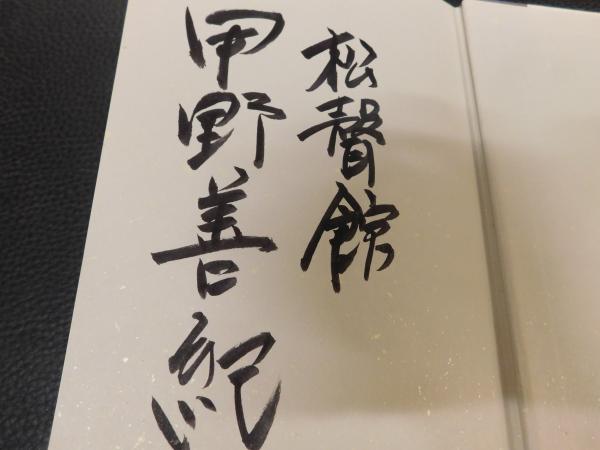 松聲館
甲野善紀